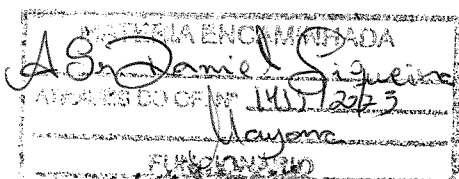 MATÉRIA ENCAMINHADA
A Sr Daniel Siqueira
ATRAVÉS DO OF. Nº 141/2023
Mayana
FUNCIONÁRIO